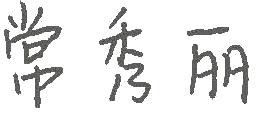 常秀丽